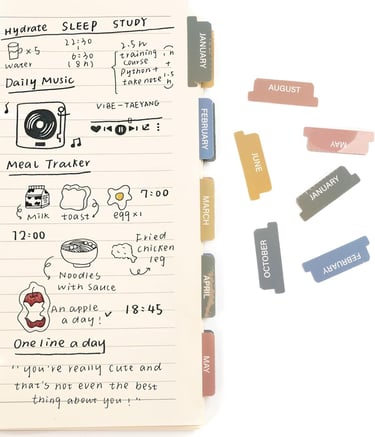 Hydrate SLEEP STUDY
x5
water
22:30
6:30
(8h)
2.5h
training
course
Python +
take note
1h
1.5h
Daily Music
VIBE-TAEYANG
Meal Tracker
Milk toast egg x1 7:00
12:00
Noodles
with sauce
Fried
chicken
leg
An apple
a day! 18:45
One line a day
"you're really cute and
that's not even the best
thing about you!"
JANUARY
FEBRUARY
MARCH
APRIL
MAY
AUGUST
MAY
JUNE
JANUARY
OCTOBER
FEBRUARY